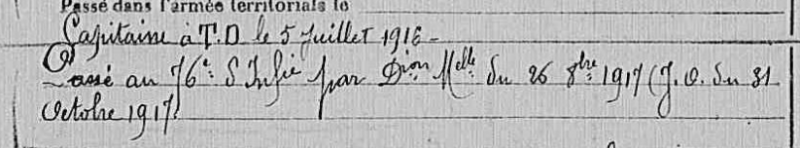 Passé dans l'armée territoriale le
Capitaine à T.D le 5 Juillet 1916 -
Passé au 76e S Infie par Dion Melle du 26 8bre 1917 (J.O. du 31
Octobre 1917